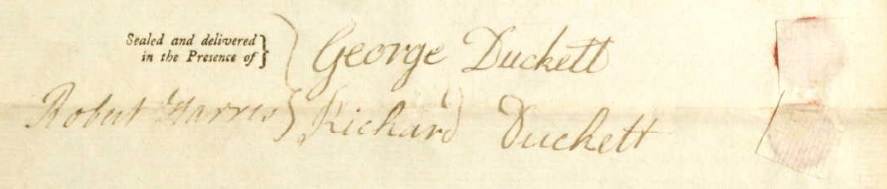 Sealed and delivered
in the Presence of
George Duckett
Robert Harris
Richard Duckett